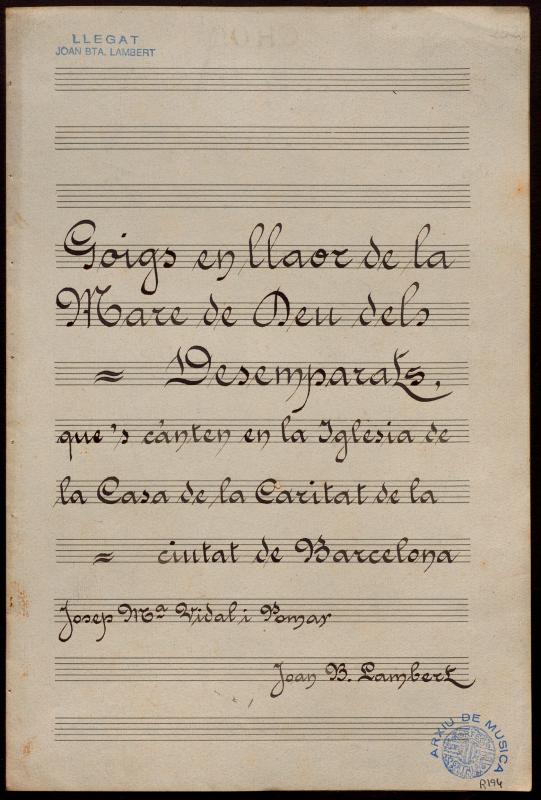 LLEGAT
JOAN BTA. LAMBERT
Goigs en llaor de la
Mare de Deu dels
= Desemparats,
que's canten en la Iglesia de
la Casa de la Caritat de la
= ciutat de Barcelona
Josep Mª Vidal i Pomar
Joan B. Lambert
ARXIU DE MUSICA
R194